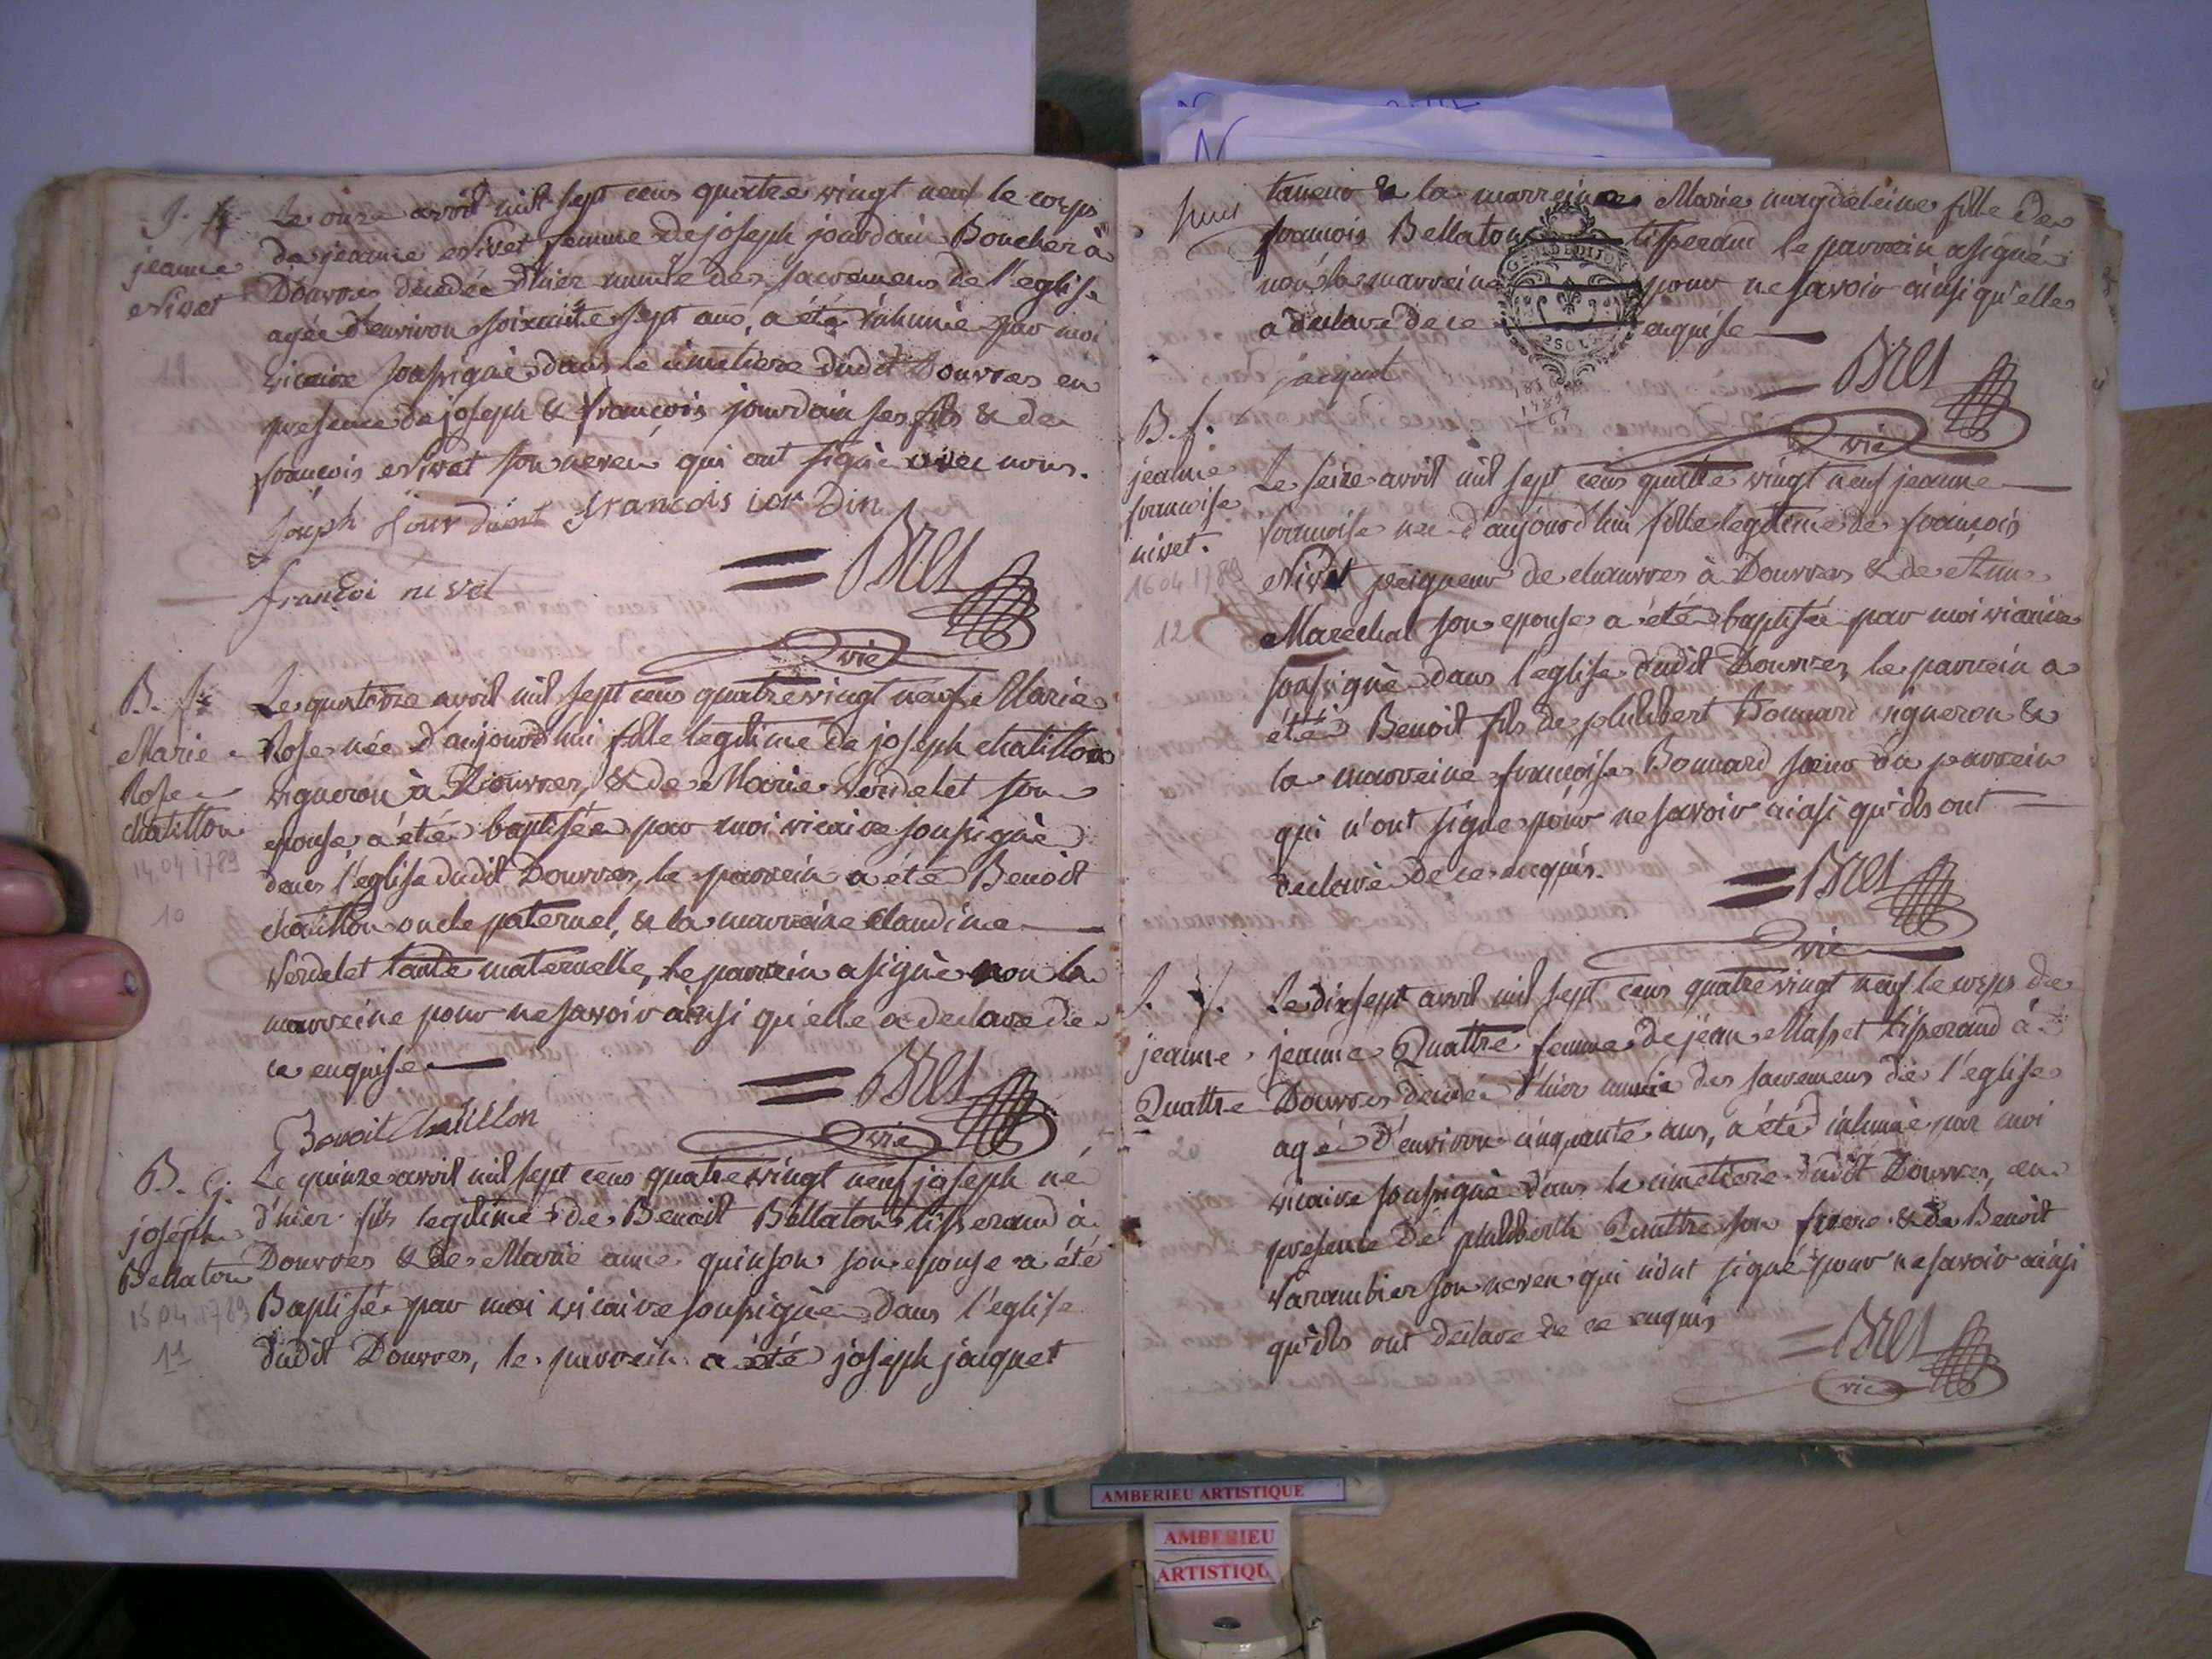 S. f.
jeanne
Nivet
Le onze avril mil sept cens quatre vingt neuf le corps
de jeanne Nivet femme de joseph jourdain Boucher à
Douvres décédée d'hier munie des sacremens de l'eglise
agée d'environ soixante sept ans, a été inhumée par moi
vicaire soussigné dans le cimetiere dudit Douvres en
presence de joseph & françois jourdain ses fils & de
françois Nivet son neveu qui ont signé avec nous.
Joseph Jourdaint françois iordin
françoi nivet
= Bret
vic
B. f.
Marie
Rose
chatillon
14.04.1789
10
Le quatorze avril mil sept cens quatre vingt neuf Marie
Rose née d'aujourd'hui fille legitime de joseph chatillon
vigneron à Douvres, & de Marie Verdelet son
epouse, a été baptisée par moi vicaire soussigné
dans l'eglise dudit Douvres, le parrein a été Benoit
chatillon oncle paternel, & la marreine claudine
Verdelet tante maternelle, le parrein a signé non la
marreine pour ne savoir ainsi qu'elle a declaré de
ce enquise
Benoit Chatillon
= Bret
vic
B. G.
joseph
Bellaton
15.04.1789
11
Le quinze avril mil sept cens quatre vingt neuf joseph né
d'hier fils legitime de Benoit Bellaton tisserand à
Douvres & de Marie anne quinson son epouse a été
Baptisé par moi vicaire soussigné dans l'eglise
dudit Douvres, le parrein a été joseph jaquet
taneur & la marreine Marie magdeleine fille de
françois Bellaton tisserand le parrein a signé
non la marreine pour ne savoir ainsi qu'elle
a declaré de ce enquise
jaquet
= Bret
vic
B. f.
jeanne
françoise
nivet.
16.04.1789
12
Le seize avril mil sept cens quatre vingt neuf jeanne
françoise née d'aujourd'hui fille legitime de françois
Nivet peigneur de chanvres à Douvres & de Anne
Marechal son epouse a été baptisée par moi vicaire
soussigné dans l'eglise dudit Douvres, le parrein a
été Benoit fils de philibert Bonnard vigneron &
la marreine françoise Bonnard sœur du parrein
qui n'ont signé pour ne savoir ainsi qu'ils ont
declaré de ce enquis.
= Bret
vic
S. f.
jeanne
Quattre
20
Le dixsept avril mil sept cens quatre vingt neuf le corps de
jeanne Quattre femme de jean Masset tisserand à
Douvres decedée d'hier munie des sacremens de l'eglise
agée d'environ cinquante ans, a été inhumée par moi
vicaire soussigné dans le cimetiere dudit Douvres, en
presence de philiberth Quattre son frere & de Benoit
Varambier son neveu qui n'ont signé pour ne savoir ainsi
qu'ils ont declaré de ce enquis
= Bret
vic
AMBERIEU ARTISTIQUE
AMBERIEU
ARTISTIQU